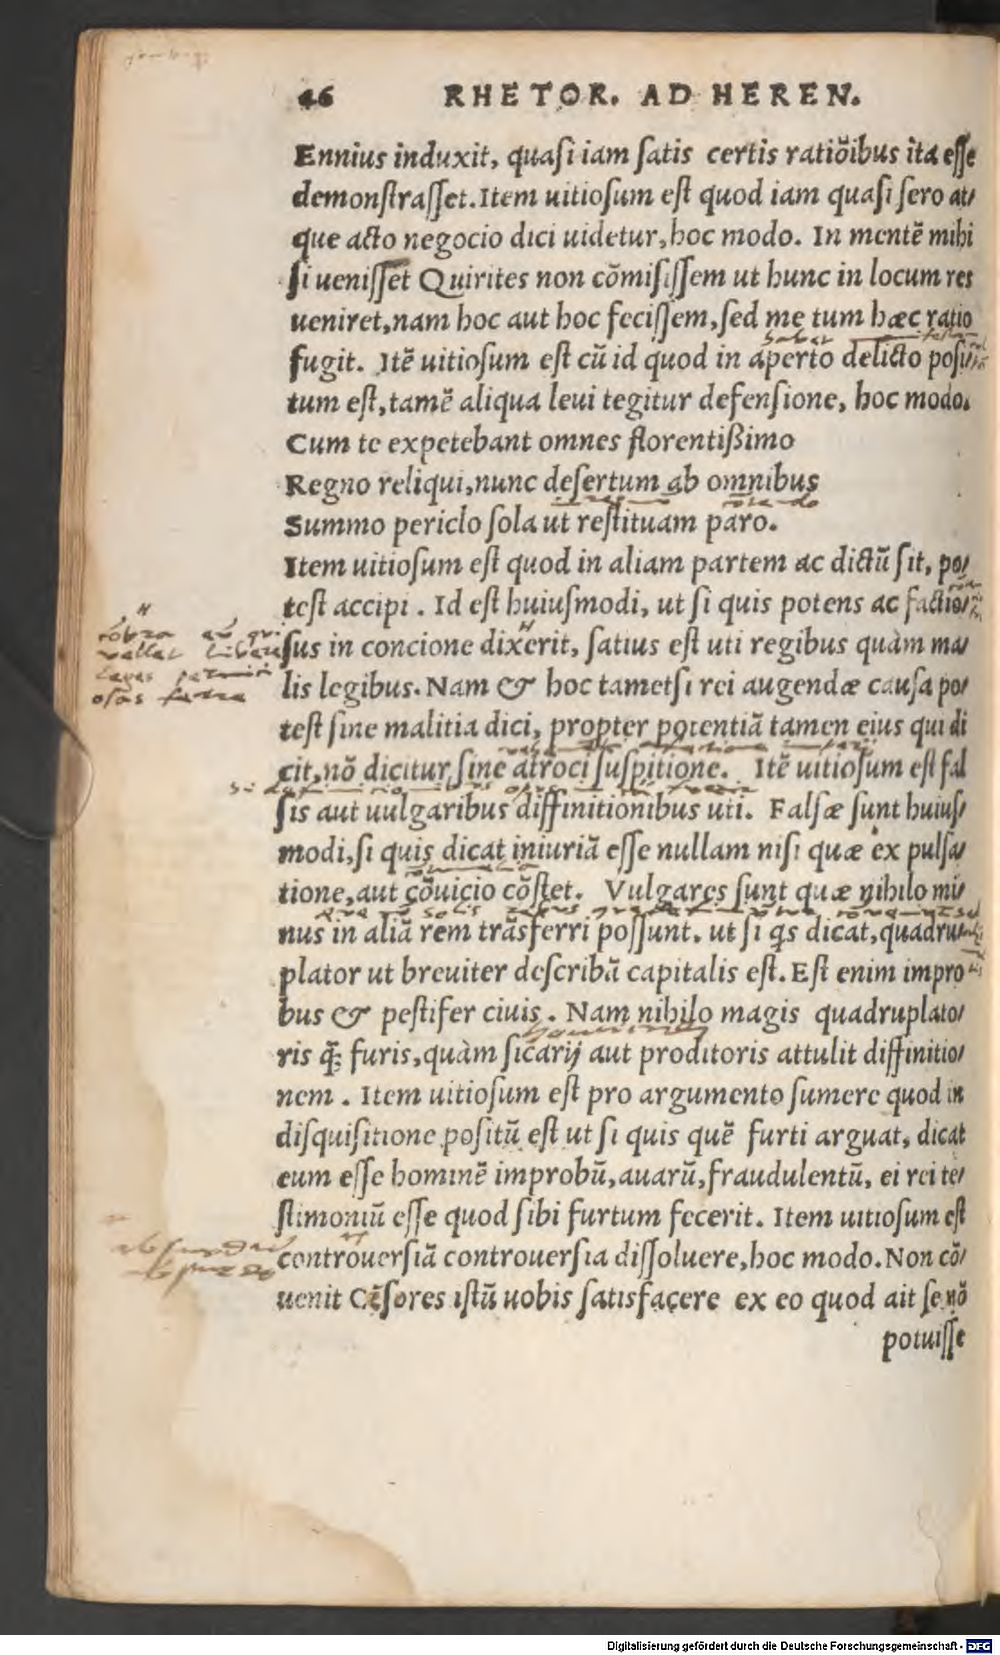 46 RHETOR. AD HEREN.
Ennius induxit, quaſi iam ſatis certis ratiõibus ita eſſe
demonſtraſſet. Item uitioſum eſt quod iam quaſi ſero at⸗
que acto negocio dici uidetur, hoc modo. In mentẽ mihi
ſi ueniſſet Quirites non cõmiſiſſem ut hunc in locum res
ueniret, nam hoc aut hoc feciſſem, ſed me tum hæc ratio
fugit. Itẽ uitioſum eſt cũ id quod in aperto delicto poſi⸗
tum eſt, tamẽ aliqua leui tegitur defenſione, hoc modo.
Cum te expetebant omnes florentißimo
Regno reliqui, nunc deſertum ab omnibus
Summo periclo ſola ut reſtituam paro.
Item uitioſum eſt quod in aliam partem ac dictũ ſit, po⸗
teſt accipi. Id eſt huiuſmodi, ut ſi quis potens ac factio⸗
ſus in concione dixerit, ſatius eſt uti regibus quàm ma⸗
lis legibus. Nam & hoc tametſi rei augendæ cauſa po⸗
teſt ſine malitia dici, propter potentiã tamen eius qui di
cit, nõ dicitur ſine atroci ſuſpitione. Itẽ uitioſum eſt fal
ſis aut uulgaribus diffinitionibus uti. Falſæ ſunt huiuſ⸗
modi, ſi quis dicat iniuriã eſſe nullam niſi quæ ex pulſa⸗
tione, aut cõuicio cõſtet. Vulgares ſunt quæ nihilo mi⸗
nus in aliã rem trãſferri poſſunt, ut ſi qs dicat, quadru⸗
plator ut breuiter deſcribã capitalis eſt. Eſt enim impro
bus & peſtifer ciuis. Nam nihilo magis quadruplato⸗
ris q̃; furis, quàm ſicarij aut proditoris attulit diffinitio⸗
nem. Item uitioſum eſt pro argumento ſumere quod in
diſquiſitione poſitũ eſt ut ſi quis quẽ furti arguat, dicat
eum eſſe hominẽ improbũ, auarũ, fraudulentũ, ei rei te⸗
ſtimoniũ eſſe quod ſibi furtum fecerit. Item uitioſum eſt
controuerſiã controuerſia diſſoluere, hoc modo. Non cõ⸗
uenit Cẽſores iſtũ uobis ſatisfacere ex eo quod ait ſe nõ
potuiſſe
Digitalisierung gefördert durch die Deutsche Forschungsgemeinschaft - DFG